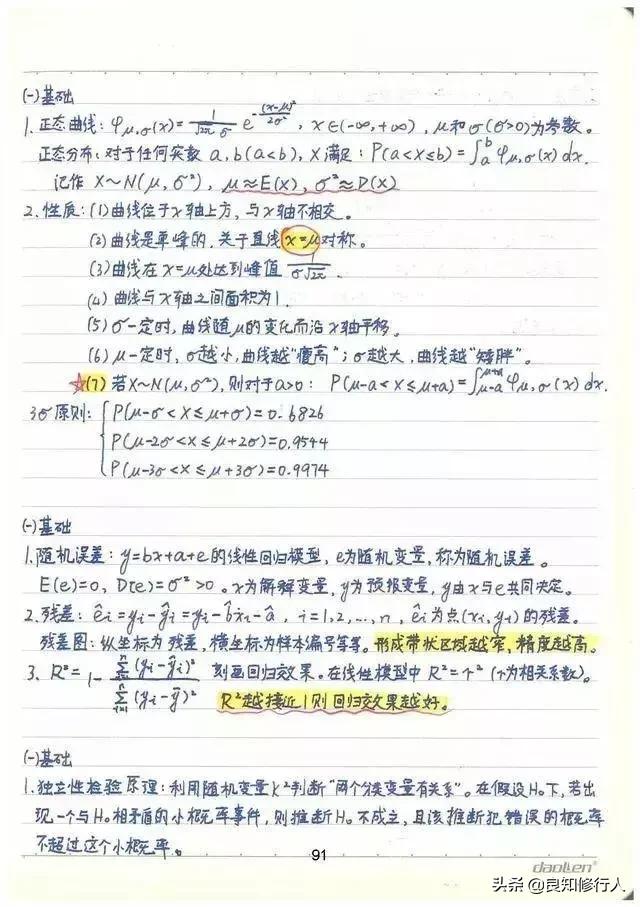 (一)基础
1. 正态曲线: φμ,σ(x)=1/(√2π σ) e^(-(x-μ)²/2σ²), x∈(-∞,+∞), μ和σ(σ>0)为参数。
正态分布: 对于任何实数 a,b(a<b), X满足: P(a<X≤b)=∫ₐᵇ φμ,σ(x)dx.
记作 X~N(μ,σ²), μ≈E(X), σ²≈D(X)
2. 性质: (1) 曲线位于x轴上方, 与x轴不相交。
(2) 曲线是单峰的, 关于直线 x=μ 对称。
(3) 曲线在 x=μ处达到峰值 1/(σ√2π).
(4) 曲线与x轴之间面积为1.
(5) σ一定时, 曲线随μ的变化而沿x轴平移。
(6) μ一定时, σ越小,曲线越“瘦高”; σ越大, 曲线越“矮胖”。
☆(7) 若X~N(μ,σ²), 则对于a>0: P(μ-a<X≤μ+a)=∫_{μ-a}^{μ+a} φμ,σ(x)dx.
3σ原则: { P(μ-σ<X≤μ+σ)=0.6826
P(μ-2σ<X≤μ+2σ)=0.9544
P(μ-3σ<X≤μ+3σ)=0.9974
(一)基础
1. 随机误差: y=bx+a+e的线性回归模型, e为随机变量, 称为随机误差。
E(e)=0, D(e)=σ²>0。x为解释变量, y为预报变量, y由x与e共同决定。
2. 残差: êi=yi-ŷi=yi-b̂xi-â, i=1,2,…,n, êi为点(xi,yi)的残差。
残差图: 纵坐标为残差, 横坐标为样本编号等等。形成带状区域越窄, 精度越高。
3. R²=1-∑_{i=1}^{n}(yi-ŷi)²/∑_{i=1}^{n}(yi-ȳ)² 刻画回归效果。在线性模型中 R²=r²(r为相关系数)。
R²越接近1则回归效果越好。
(一)基础
1. 独立性检验原理: 利用随机变量K²判断“两个分类变量有关系”。在假设H₀下, 若出
现一个与H₀相矛盾的小概率事件, 则推断H₀不成立, 且该推断犯错误的概率
不超过这个小概率。
91
daoLen®
头条@良知修行人